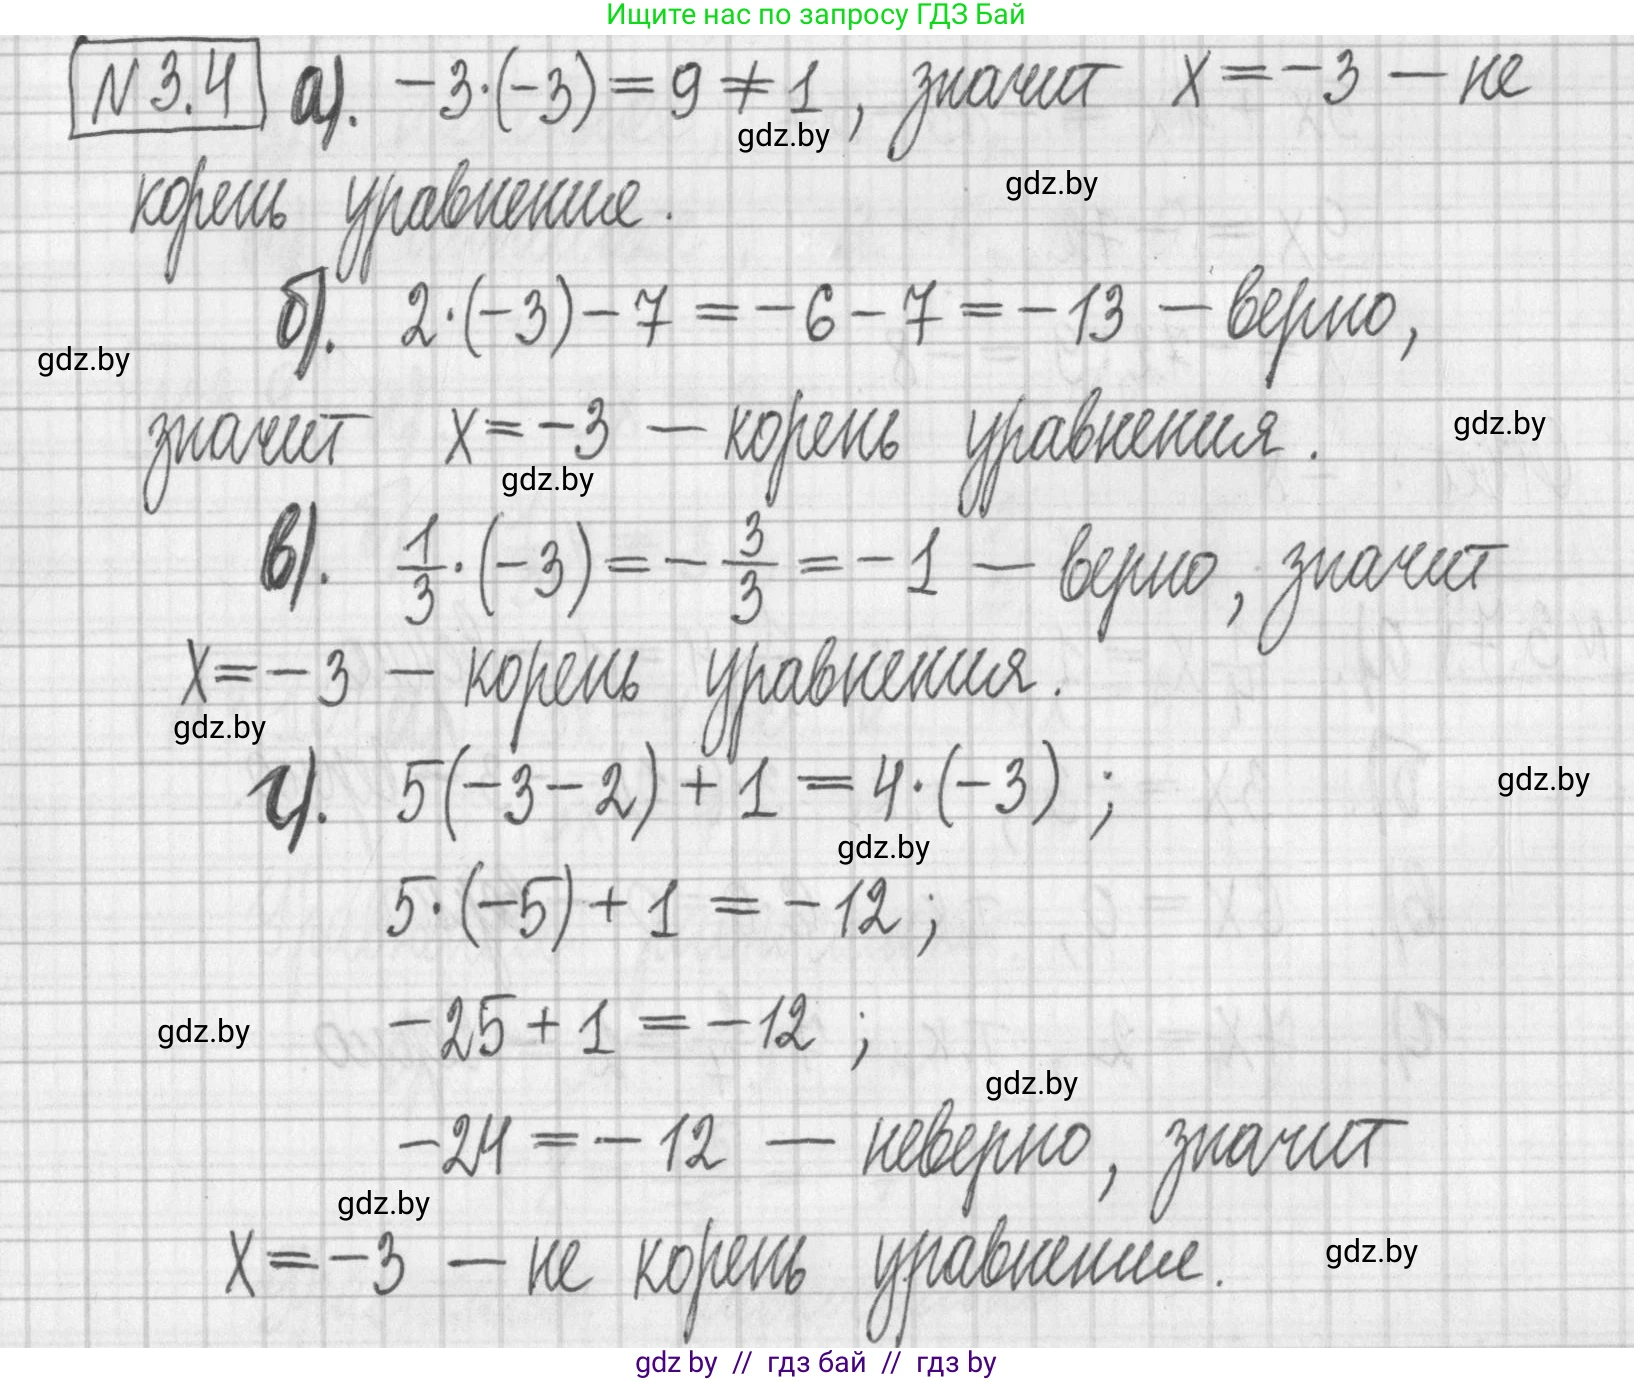 Ищите нас по запросу ГДЗ Бай
N 3.4 а). -3·(-3) = 9 ≠ 1, значит x = -3 - не
gdz.by
gdz.by
корень уравнение.
б). 2·(-3) - 7 = -6 - 7 = -13 - верно,
gdz.by
значит x = -3 - корень уравнения.
gdz.by
gdz.by
в). 1/3·(-3) = -3/3 = -1 - верно, значит
x = -3 - корень уравнения.
gdz.by
г). 5(-3-2) + 1 = 4·(-3) ;
gdz.by
gdz.by
5·(-5) + 1 = -12 ;
-25 + 1 = -12 ;
gdz.by
gdz.by
-24 = -12 - неверно, значит
gdz.by
x = -3 - не корень уравнение.
gdz.by
gdz by // гдз бай // гдз by